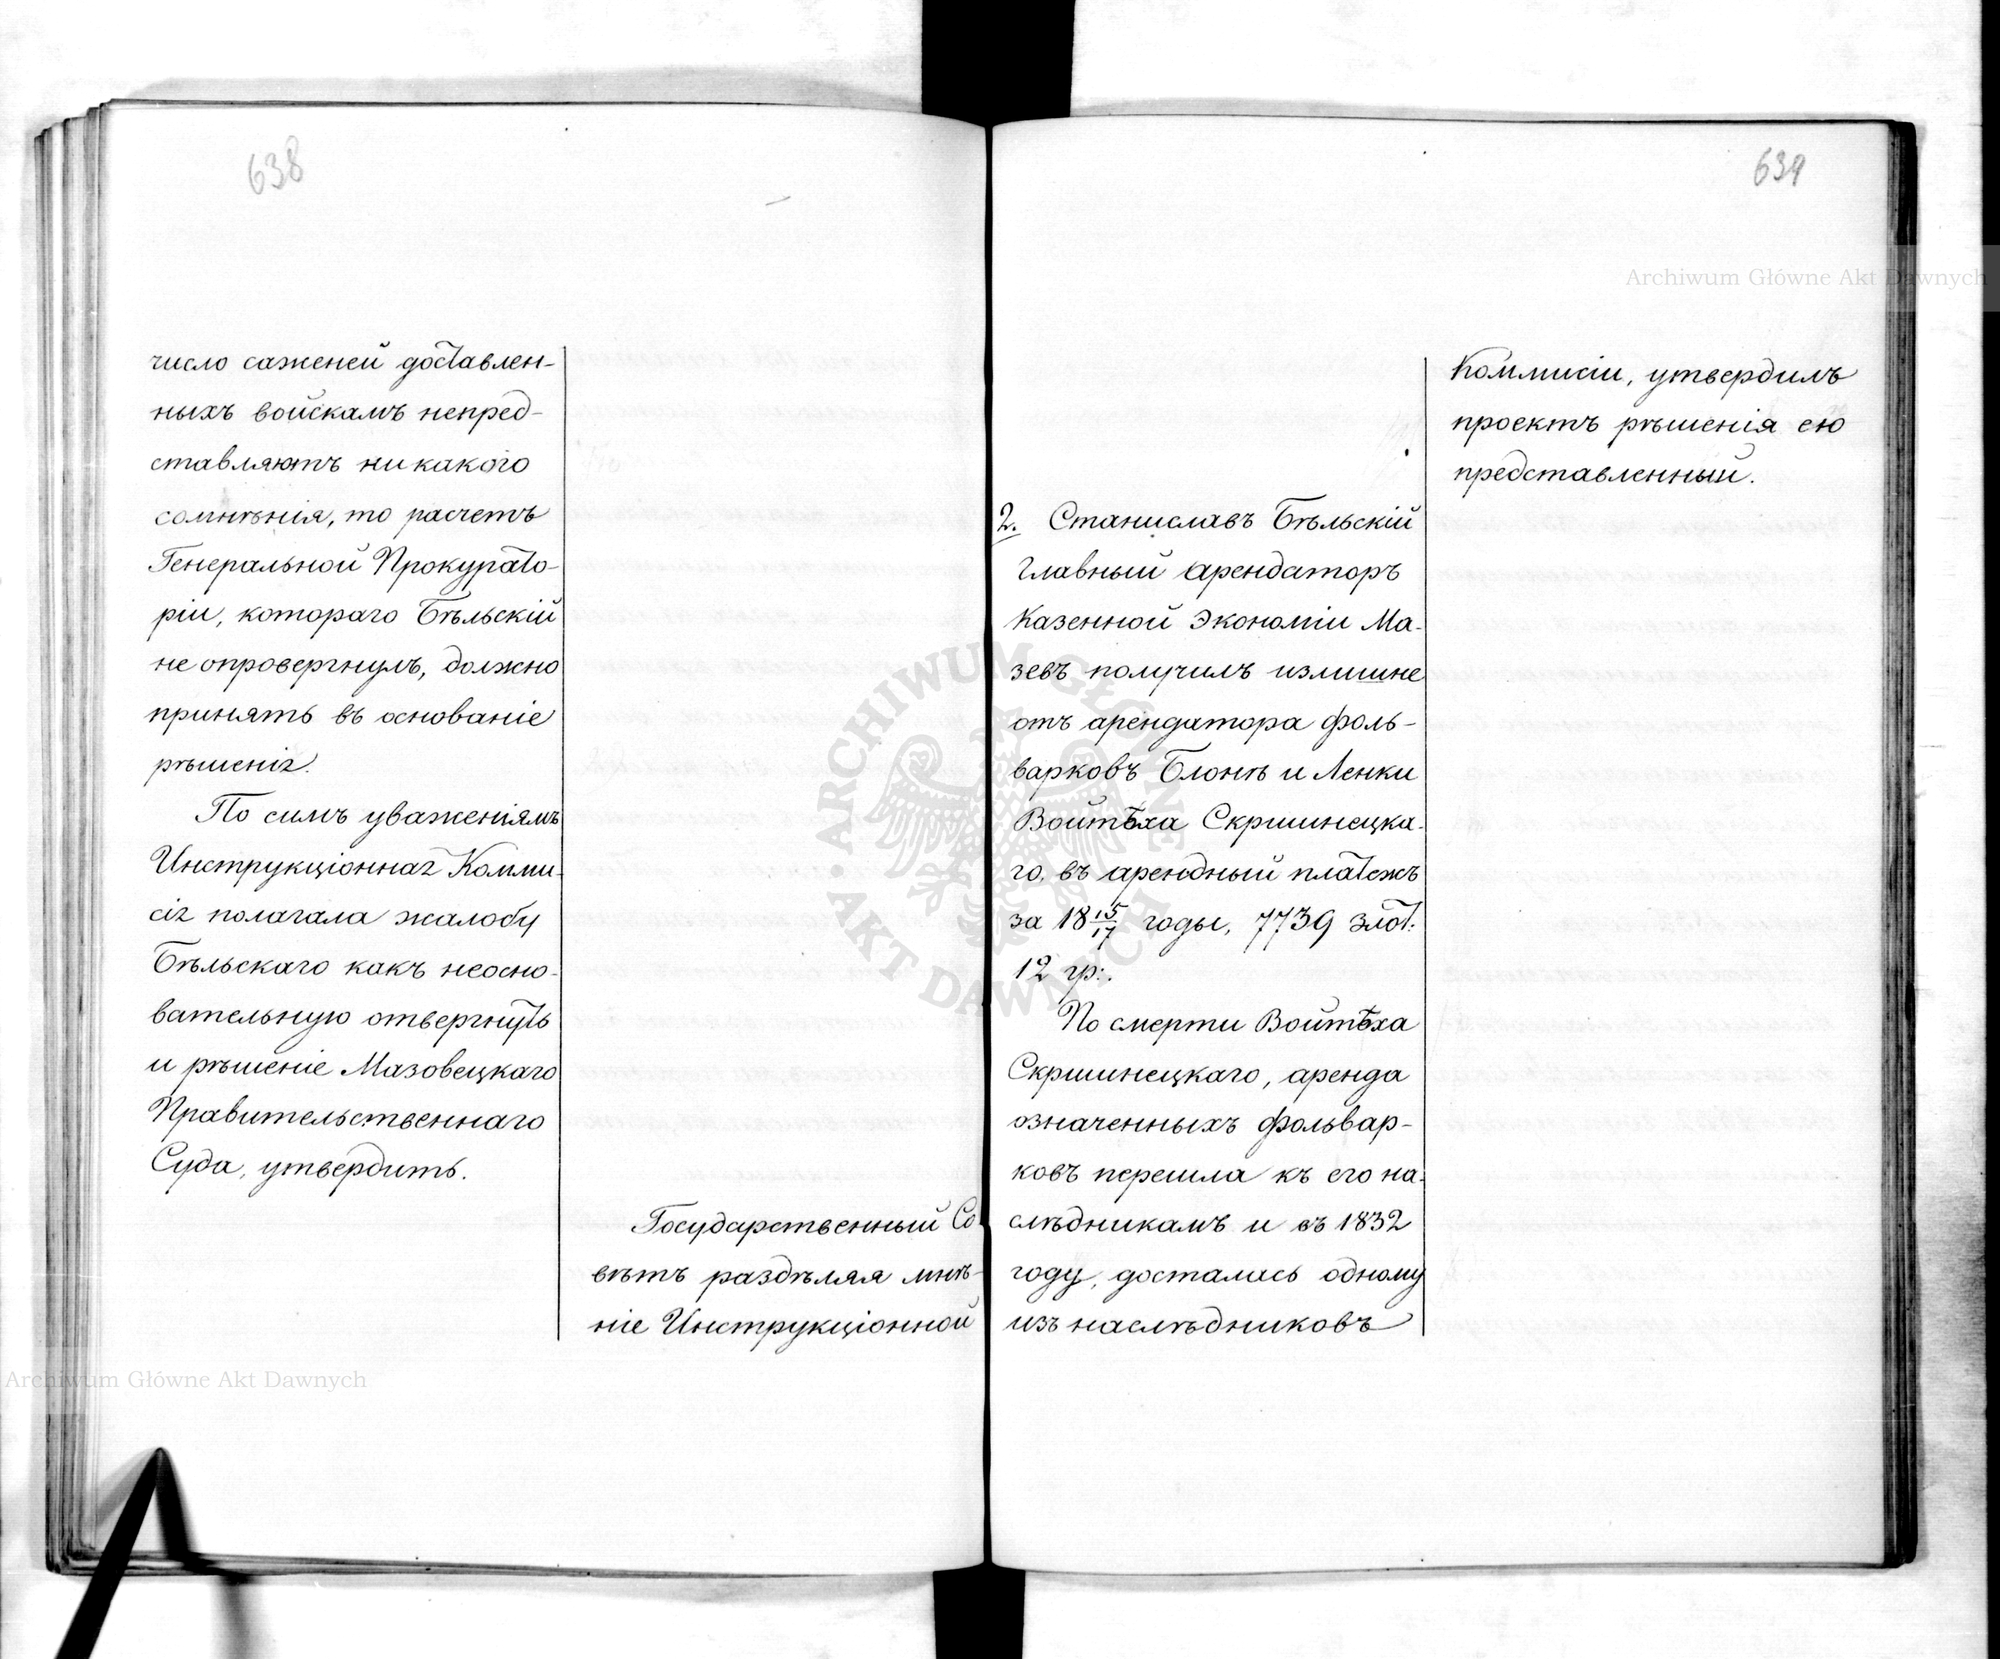 638
число саженей доставлен-
ныхъ войскамъ непред-
ставляютъ никакого
сомнѣнія, то расчетъ
Генеральной Прокурато-
ріи, котораго Бѣльскій
не опровергнулъ, должно
принять въ основаніе
рѣшенія.
По симъ уваженіямъ
Инструкціонная Комми-
сія полагала жалобу
Бѣльскаго какъ неосно-
вательную отвергнуть
и рѣшеніе Мазовецкаго
Правительственнаго
Суда, утвердить.
Государственный Со-
вѣтъ раздѣляя мнѣ-
ніе Инструкціонной
639
Коммисіи, утвердилъ
проектъ рѣшенія ею
представленный.
2. Станиславъ Бѣльскій
Главный арендаторъ
Казенной Экономіи Ма-
зевъ получилъ излишне
отъ арендатора фоль-
варковъ Блонѣ и Ленки
Войтѣха Скршинецка-
го, въ арендный платежъ
за 18 15/17 годы, 7739 злот:
12 гр:.
По смерти Войтѣха
Скршинецкаго, аренда
означенныхъ фольвар-
ковъ перешла къ его на-
слѣдникамъ и въ 1832
году, досталась одному
изъ наслѣдниковъ
Archiwum Główne Akt Dawnych
Archiwum Główne Akt Dawnych
ARCHIWUM GŁÓWNE AKT DAWNYCH